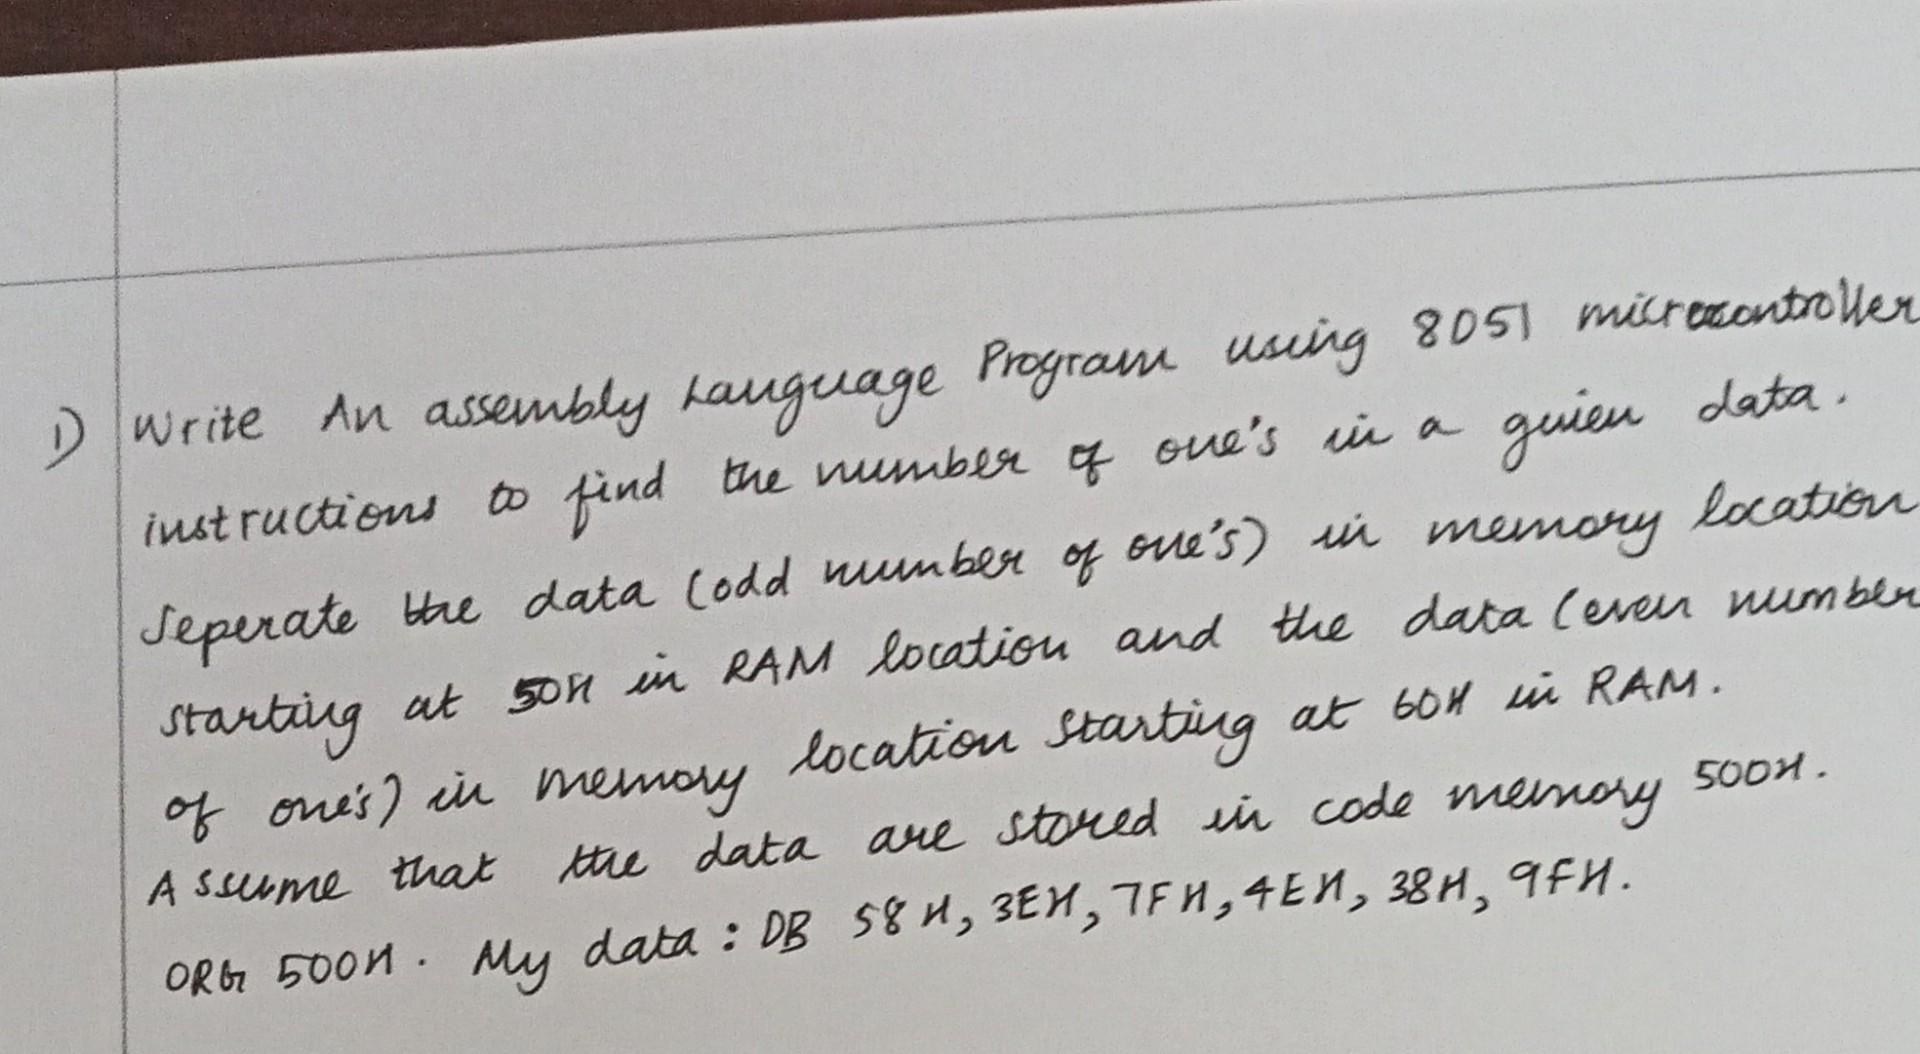 1) Write An assembly Language Program using 8051 microcontroller
instructions to find the number of one's in a given data.
Seperate the data (odd number of one's) in memory location
starting at 50H in RAM location and the data (even number
of one's) in memory location starting at 60H in RAM.
Assume that the data are stored in code memory 500H.
ORG 500H. My data : DB 58H, 3EH, 7FH, 4EH, 38H, 9FH.